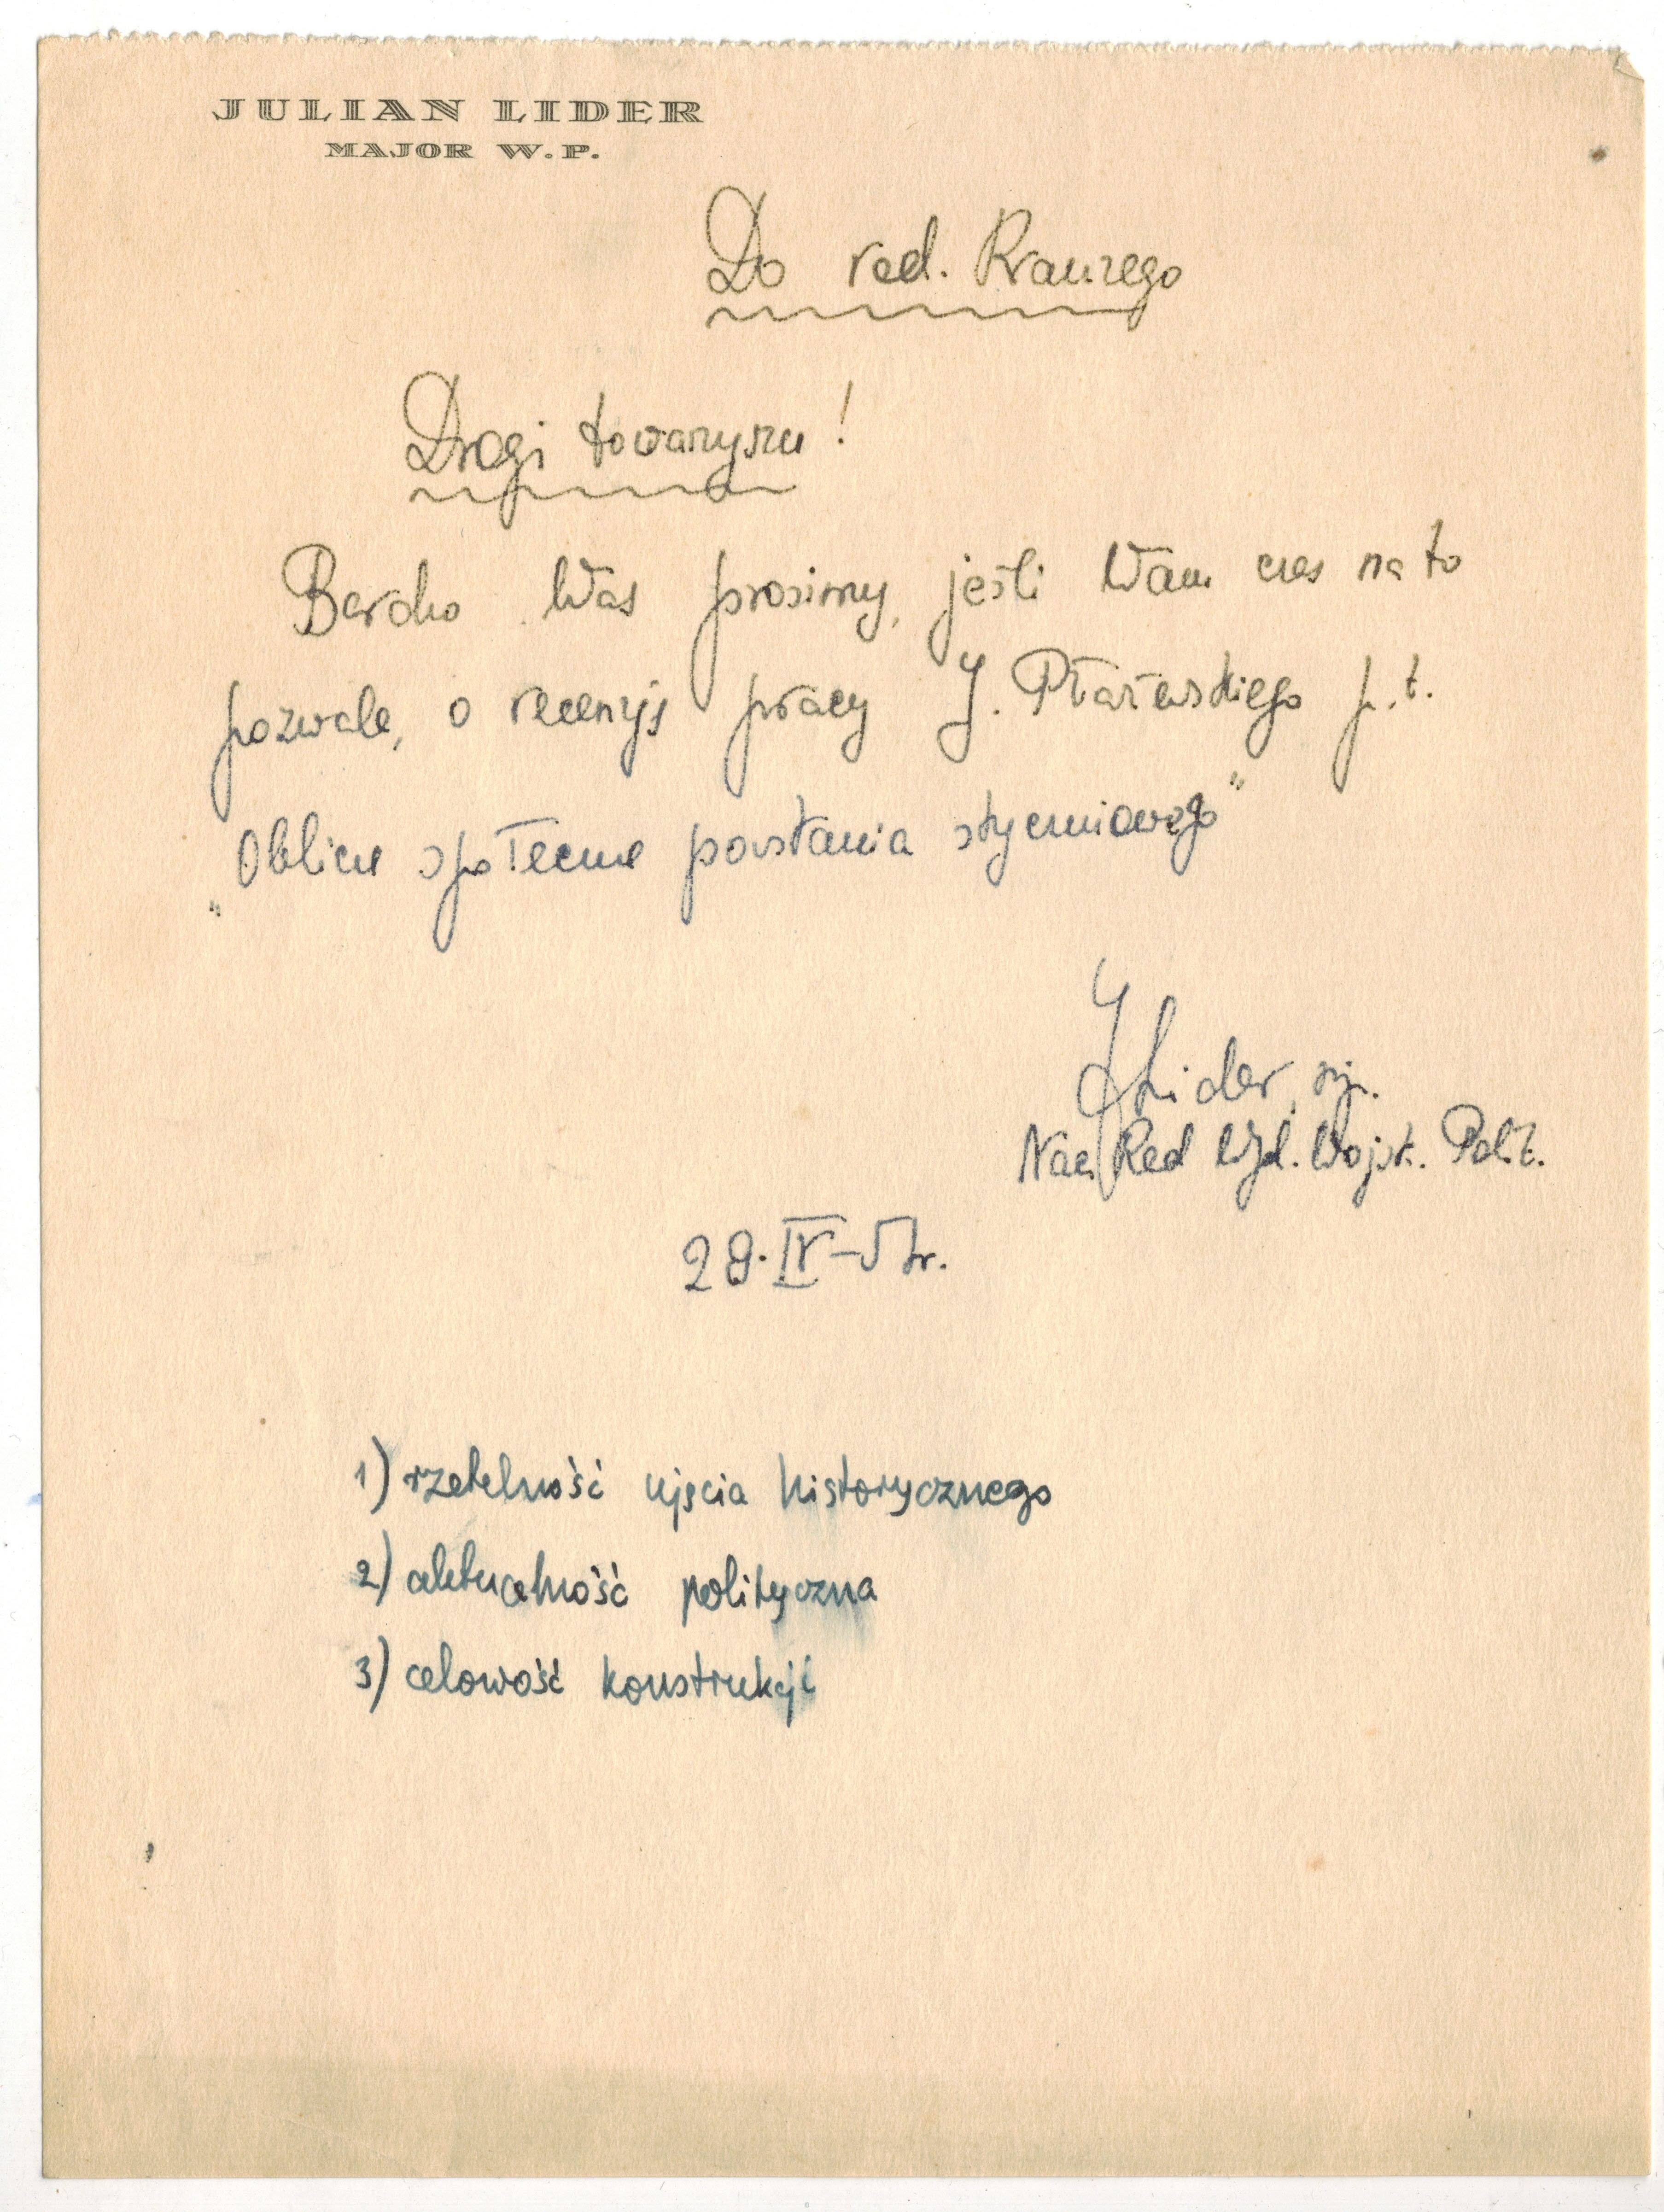 JULIAN LIDER
MAJOR W.P.
Do red.
Drogi towarzyszu!
Bardzo Was prosimy, jeśli Wam czas na to
pozwala, o recenzję pracy J. Płażewskiego p.t.
„Oblicze społeczne powstania styczniowego"
JLider, mjr.
Nacz. Red Wyd. Wojsk. Polit.
28.IV-51r.
1) rzetelność ujęcia historycznego
2) aktualność polityczna
3) celowość konstrukcji